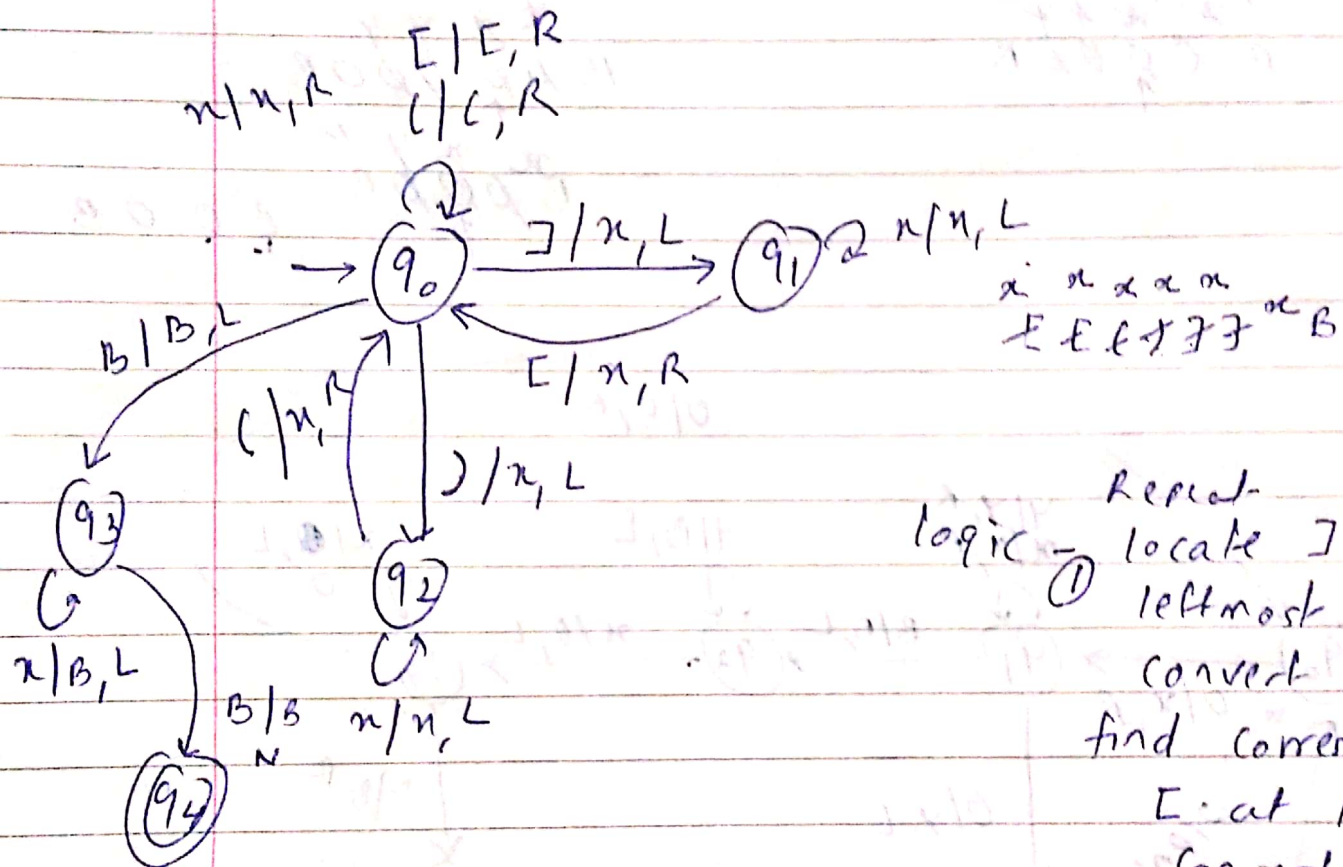 [/[, R
x/x, R (/(, R
q0 ]/x, L q1 x/x, L
x x x x x
[ [ [ ] ] ] x B
B/B, L
[/x, R
(/x, R
)/x, L
q3
q2
x/B, L
B/B
N
x/x, L
q4
Repeat
logic - ① locate ]
leftmost
convert
find corres
[ at